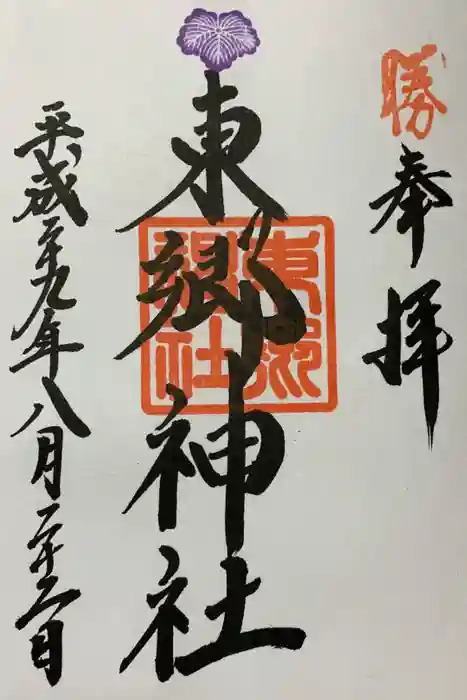 勝
奉拝
東郷神社
東郷神社
平成二十九年八月二十六日